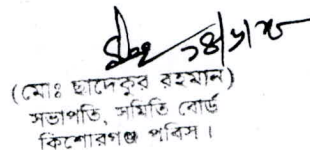 ২৪/১/২৮
(মোঃ ছাদেকুর রহমান)
সভাপতি, সমিতি বোর্ড
কিশোরগঞ্জ পবিস।